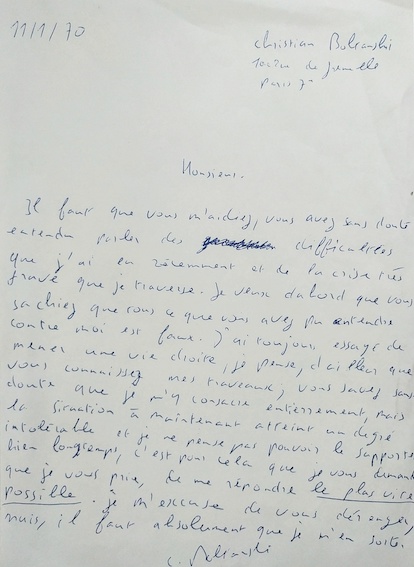 11/1/70
Christian Boltanski
rue de Grenelle
Paris 7e
Monsieur.
Il faut que vous m'aidiez, vous avez sans doute
entendu parler des difficultées
que j'ai eu récemment et de la crise très
grave que je traverse. Je veux dabord que vous
sachiez que tous ce que vous avez pu entendre
contre moi est faux. J'ai toujours essayé de
mener une vie droite, je pense, d'ailleurs que
vous connaissez mes traveaux; vous savez sans
doute que je m'y consacre entièrement, mais
la situation à maintenant atteint un degré
intolérable et je ne pense pas pouvoir le supporter
bien longtemps, c'est pour cela que je vous demande
que je vous prie, de me répondre le plus vite
possible. je m'excuse de vous déranger,
mais, il faut absolument que je m'en sorte.
C. Boltanski